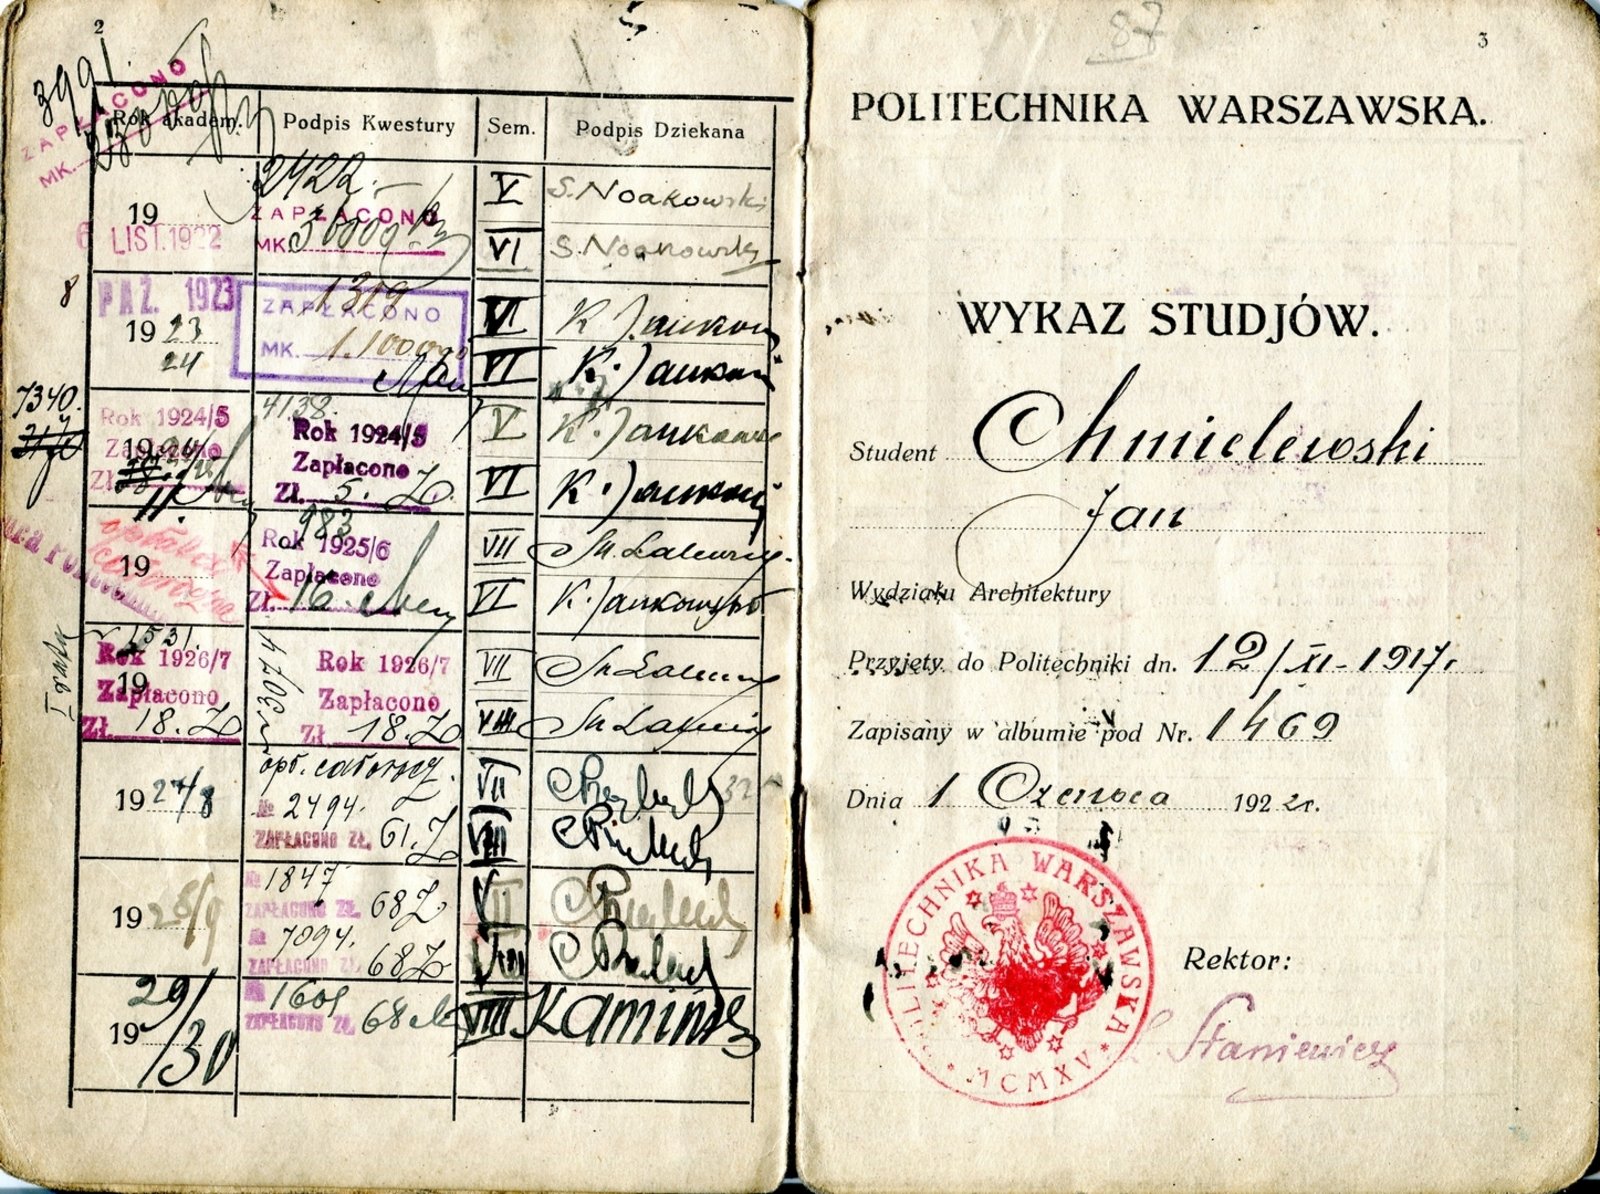 2
3991.
ZAPŁACONO
MK.
Rok akadem. Podpis Kwestury Sem. Podpis Dziekana
2422.—
19 ZAPŁACONO V S. Noakowski
6 LIST. 1922 MK. 30000 VI S. Noakowski
8 PAŹ. 1923 1319 VI K. Jankowski
19 23 ZAPŁACONO
24 MK. 1.100000 VI K. Jankowski
7340. 4138.
Rok 1924/5 Rok 1924/5 V K. Jankowski
Zapłacono Zapłacono
19 24/
Zł. Zł. 5. VI K. Jankowski
11.
983
19 Rok 1925/6 VII
Zapłacono
Zł. 16. VI K. Jankowski
I rata 1531. 3074
Rok 1926/7 Rok 1926/7 VII
19
Zapłacono Zapłacono
Zł. 18. Zł 18. VIII
opł. całorocz.
19 27/8 № 2494. VII
ZAPŁACONO ZŁ. 61. VIII
№ 1847 VII
19 28/9 ZAPŁACONO ZŁ. 68
№ 7094. VIII
ZAPŁACONO ZŁ. 68
19 29/30 № 1601 VIII Kamiński
ZAPŁACONO ZŁ. 68
87
3
POLITECHNIKA WARSZAWSKA.
WYKAZ STUDJÓW.
Student Chmielewski
Jan
Wydziału Architektury
Przyjęty do Politechniki dn. 12/XI-1917 r.
Zapisany w albumie pod Nr. 1469
Dnia 1 Czerwca 1922 r.
POLITECHNIKA WARSZAWSKA
* MCMXV *
Rektor:
L. Staniewicz